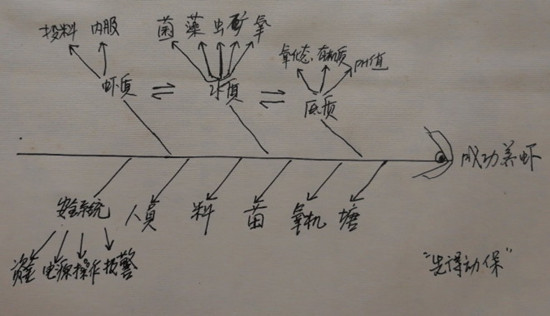 投料 内服
菌 藻 虫 矿 氧
氧化态 有机质 PH值
虾质 ⇌ 水质 ⇌ 底质
成功养虾
安全系统 人员 料 苗 氧机 塘
电源 操作 报警
"先得动保"